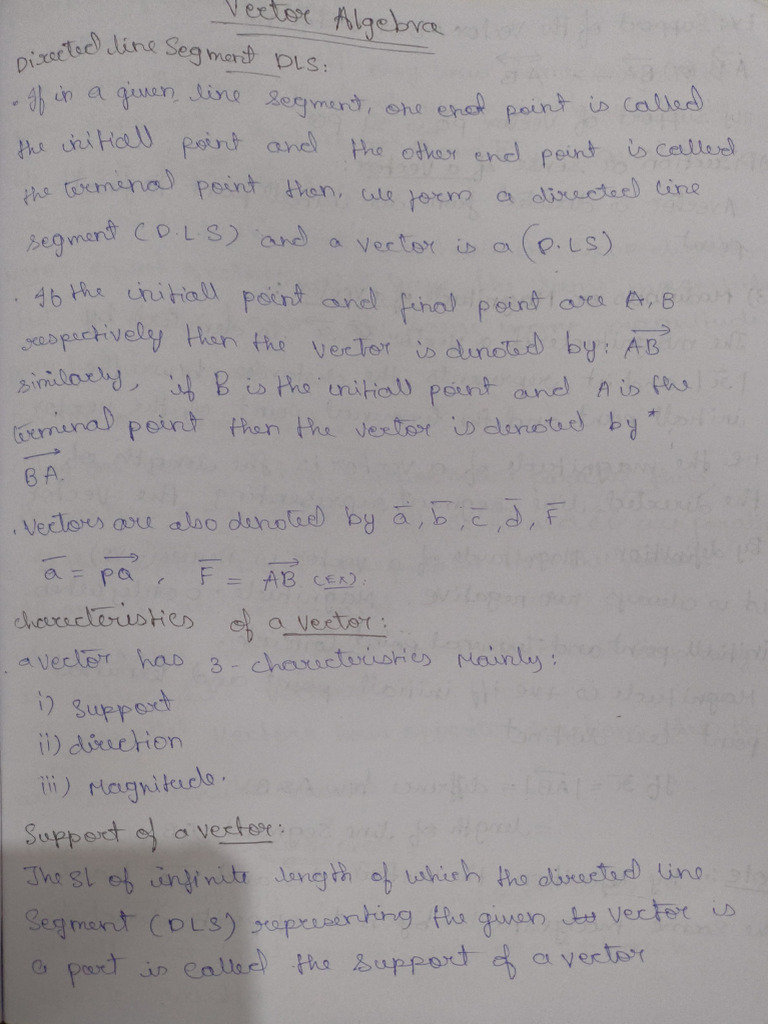 Vector Algebra
Directed line Segment DLS:
. If in a given line segment, one end point is called
the initiall point and the other end point is called
the terminal point then, we form a directed line
segment (D.L.S) and a vector is a (D.LS)
. If the initiall point and final point are A, B
respectively then the vector is denoted by: AB
similarly, if B is the initiall point and A is the
terminal point then the vector is denoted by *
BA.
. Vectors are also denoted by a̅, b̅, c̅, d̅, F̅
a̅ = PQ, F̅ = AB (EX).
charecteristics of a vector:
. a vector has 3-charecteristics Mainly:
i) Support
ii) direction
iii) Magnitude.
Support of a vector:
The SL of infinite length of which the directed line
Segment (DLS) representing the given vector is
a part is called the support of a vector